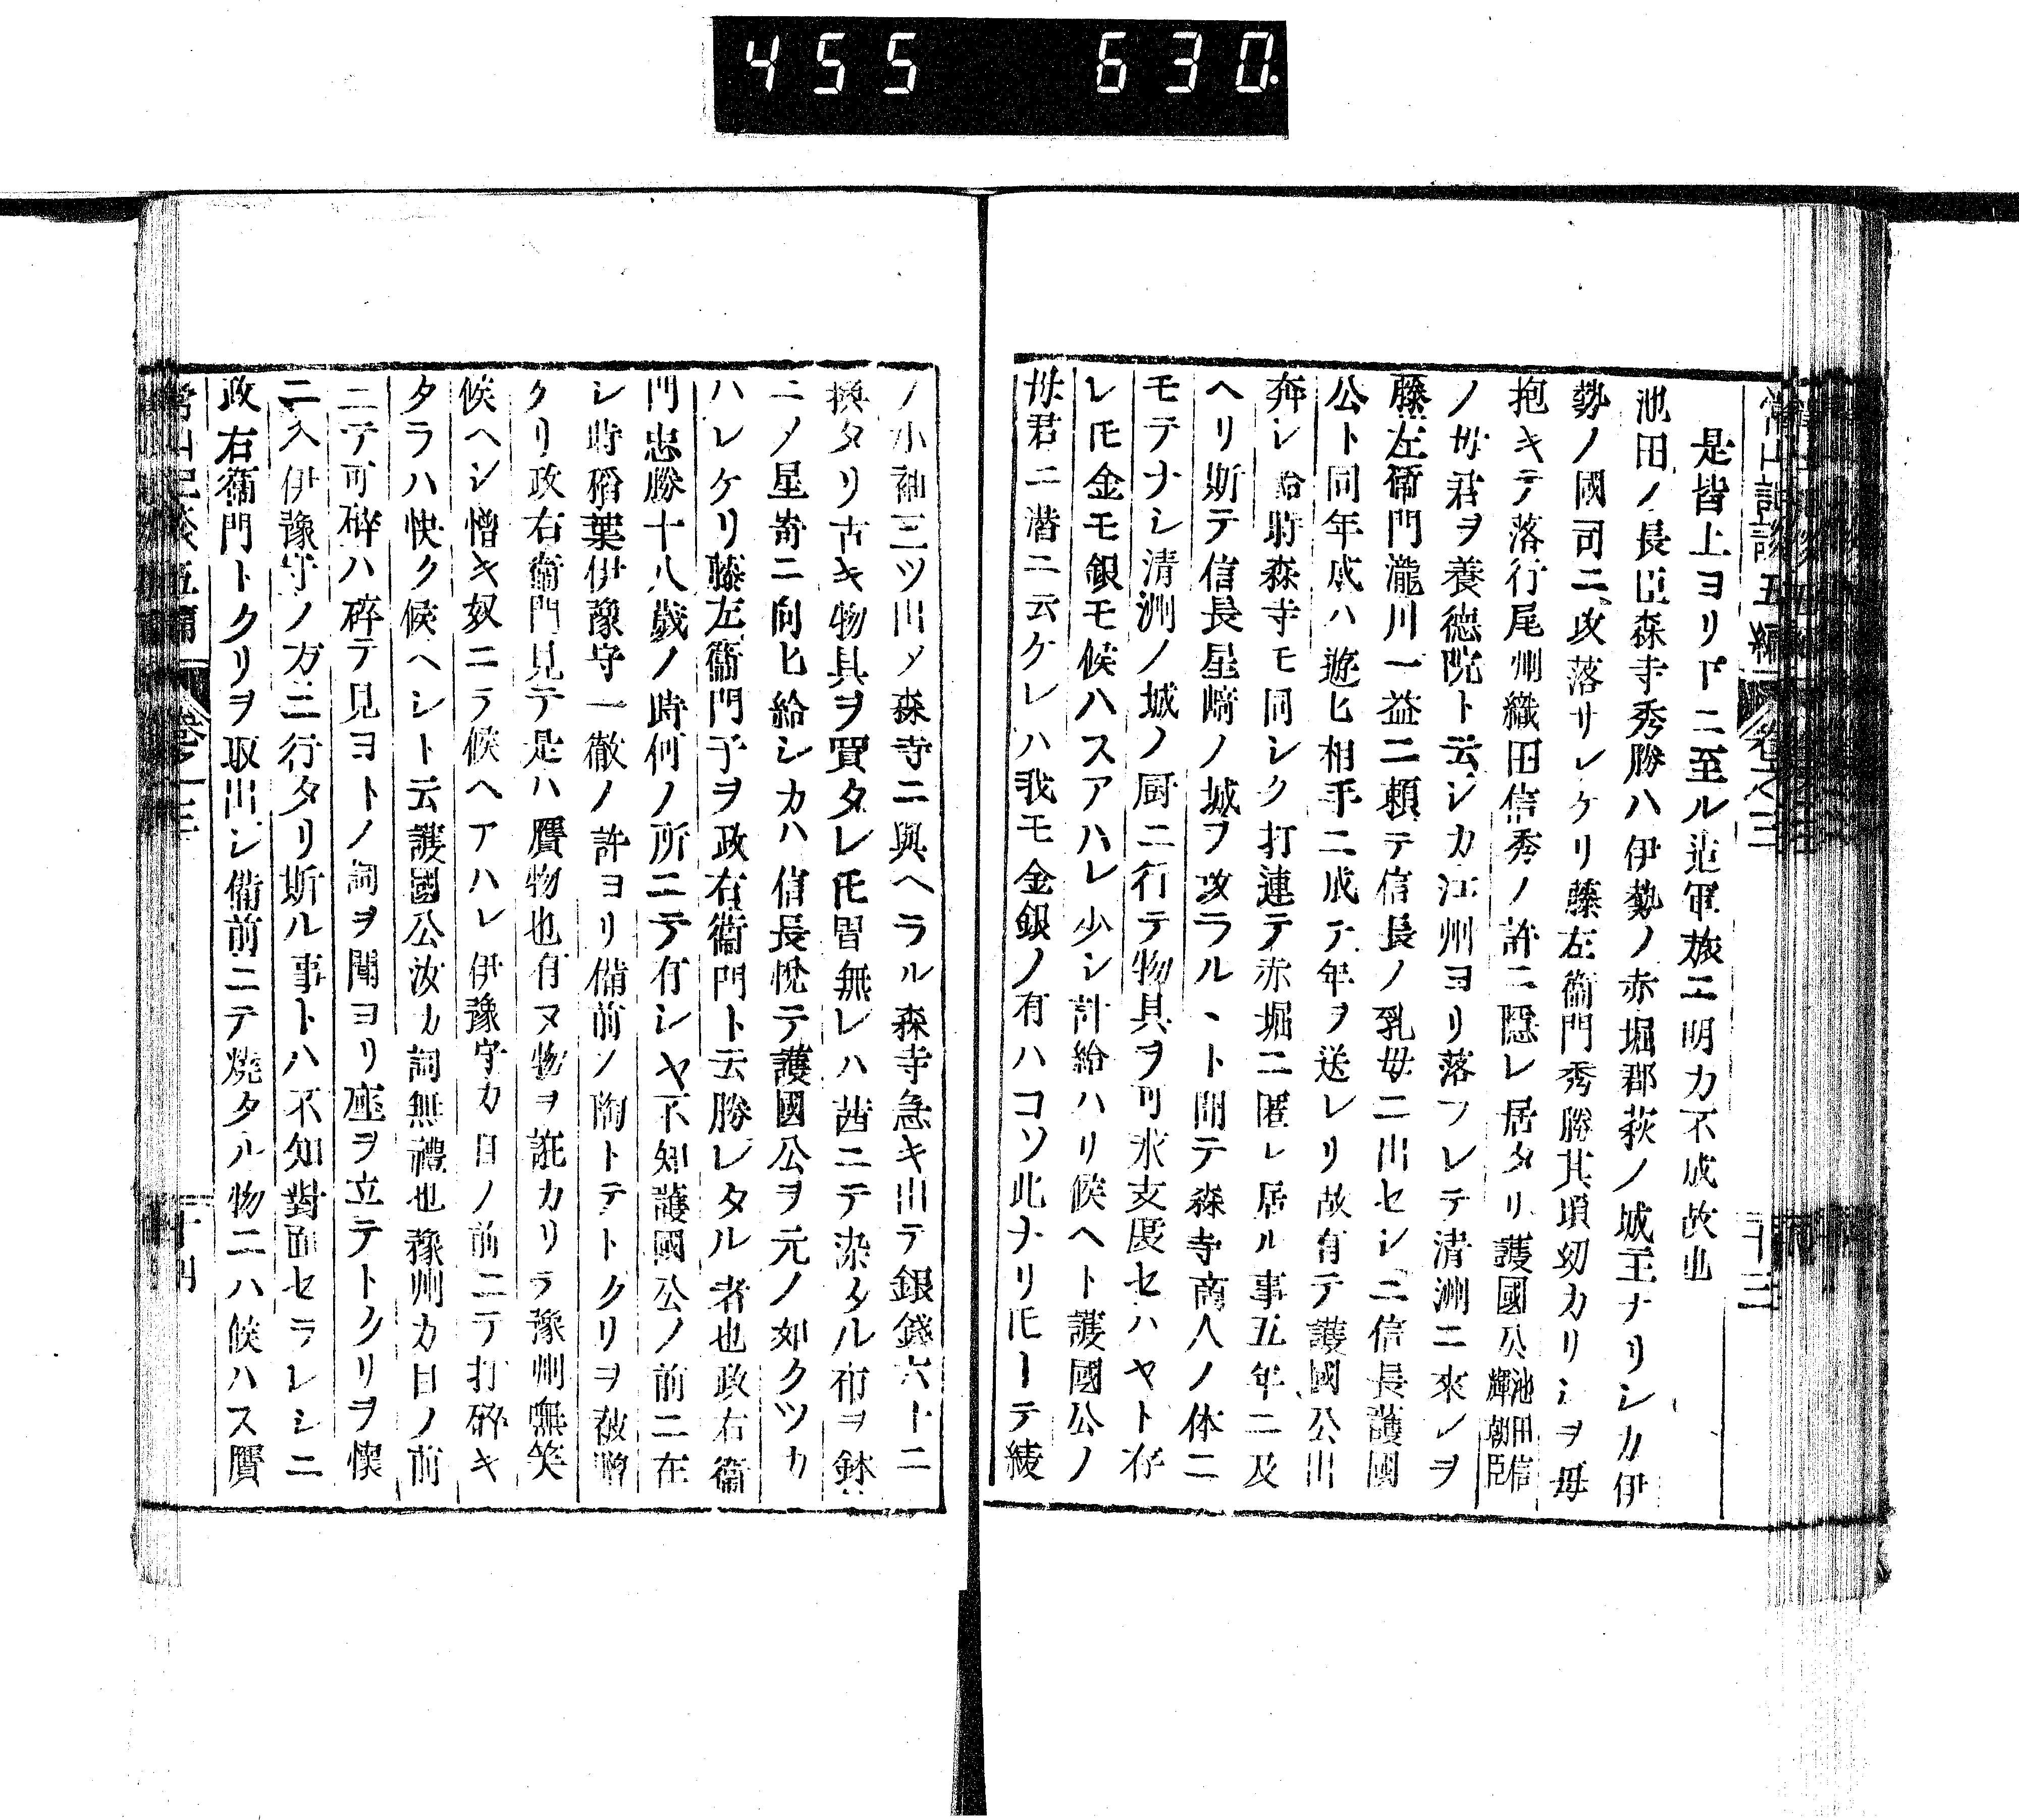 455 630.
常山記談五編 卷之三 十三
是皆上ヨリ下ニ至ル迄軍旅ニ明カ不成故也
池田ノ長臣森寺秀勝ハ伊勢ノ赤堀郡萩ノ城王ナリシカ伊
勢ノ國司ニ攻落サレケリ藤左衞門秀勝其頃幼カリシヲ毋
抱キテ落行尾州織田信秀ノ許ニ隱レ居タリ護國公池田信輝朝臣
ノ毋君ヲ養德院ト云シカ江州ヨリ落フレテ清洲ニ來レヲ
藤左衞門瀧川一益ニ頼テ信長ノ乳毋ニ出セシニ信長護國
公ト同年成ハ遊ヒ相手ニ成テ年ヲ送レリ故有テ護國公出
奔シ給時森寺モ同シク打連テ赤堀ニ匿レ居ル事五年ニ及
ヘリ斯テ信長星﨑ノ城ヲ攻ラルヽト聞テ森寺商人ノ体ニ
モテナシ清洲ノ城ノ厨ニ行テ物具ヲ可求支度セハヤト存
レ𪜈金モ銀モ候ハスアハレ少シ計給ハリ候ヘト護國公ノ
毋君ニ潜ニ云ケレハ我モ金銀ノ有ハコソ此ナリ𪜈ーテ綾
ノ小袖三ツ出メ森寺ニ與ヘラル森寺急キ出テ銀錢六十ニ
換タリ古キ物具ヲ買タレ𪜈冐無レハ茜ニテ染タル布ヲ鉢
ニノ星嵜ニ向ヒ給シカハ信長悅テ護國公ヲ元ノ如クツカ
ハレケリ藤左衞門子ヲ政右衞門ト云勝レタル者也政右衞
門忠勝十八歲ノ時何ノ所ニテ有シヤ不知護國公ノ前ニ在
シ時稻葉伊豫守一徹ノ許ヨリ備前ノ陶トテトクリヲ被贈
クリ政右衞門見テ是ハ贋物也有ヌ物ヲ誑カリラ豫州嘸笑
候ヘシ憎キ奴ニラ候ヘアハレ伊豫守カ目ノ前ニテ打碎キ
タラハ快ク候ヘシト云護國公汝カ詞無禮也豫州カ目ノ前
ニテ可碎ハ碎テ見ヨトノ詞ヲ聞ヨリ座ヲ立テトクリヲ懷
ニ入伊豫守ノ方ニ行タリ斯ル事トハ不知對面セラレシニ
政右衞門トクリヲ取出シ備前ニテ燒タル物ニハ候ハス贋
常山記談五編 卷之三 十四